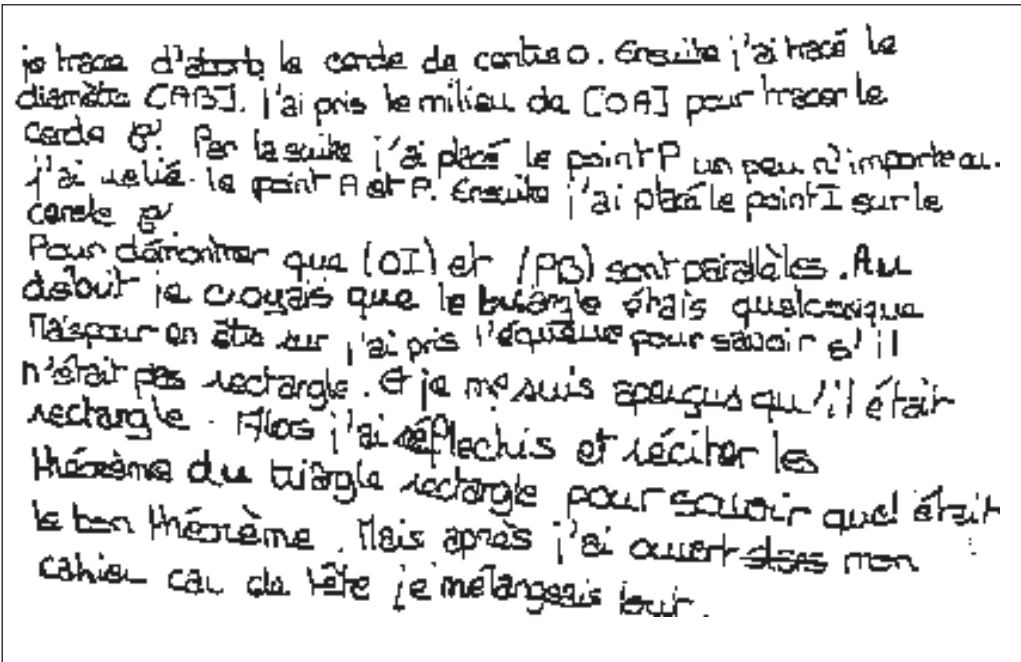 je trace d'abord le cercle de centre O. Ensuite j'ai tracé le
diamètre [AB]. j'ai pris le milieu de [OA] pour tracer le
cercle &'. Par la suite j'ai placé le point P un peu n'importe ou.
j'ai relié le point A et P. Ensuite j'ai placé le point I sur le
cercle &'
Pour démontrer que (OI) et (PB) sont parallèles. Au
début je croyais que le triangle étais quelconque
Mais pour en être sur j'ai pris l'équerre pour savoir s'il
n'était pas rectangle. Et je me suis aperçus qu'il était
rectangle. Alos j'ai réflechis et réciter les
théorème du triangle rectangle pour savoir quel était
le bon théorème. Mais après j'ai ouvert mon
cahier car de tête je mélangeais tout.